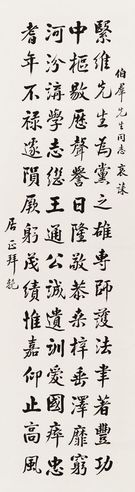 伯群先生同志 哀诔
繄維先生為黨之雄專師護法聿著豐功
中樞敭歷聲譽日隆敬恭桑梓垂澤靡窮
河汾講學志繼王通公誠遺訓愛國瘁忠
耆年不禄遽隕厥躬茂績惟嘉仰止高風
居正拜輓